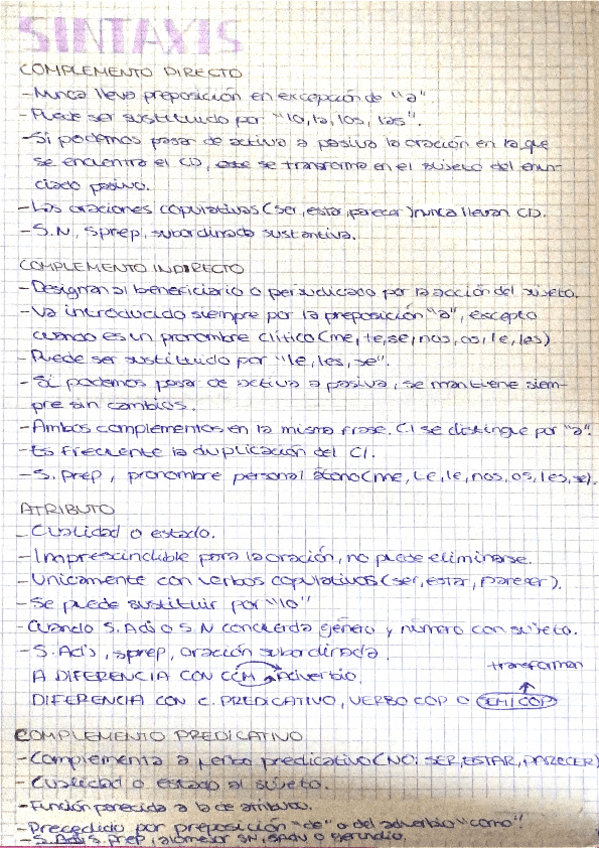 SINTAXIS
COMPLEMENTO DIRECTO
-Nunca lleva preposición en excepción de "a".
-Puede ser sustituido por "lo, la, los, las".
-Si podemos pasar de activa a pasiva la oración en la que
se encuentra el CD, se transforma en el sujeto del enun-
ciado pasivo.
-Las oraciones copulativas (ser, estar, parecer) nunca llevan CD.
-S.N, sprep, subordinada sustantiva.
COMPLEMENTO INDIRECTO
-Designan al beneficiario o perjudicado por la acción del sujeto.
-Va introducido siempre por la preposición "a", excepto
cuando es un pronombre clítico (me, te, se, nos, os, le, les)
-Puede ser sustituido por "le, les, se".
-Si podemos pasar de activa a pasiva, se mantiene siem-
pre sin cambios.
-Ambos complementos en la misma frase. CI se distingue por "a".
-Es frecuente la duplicación del CI.
-S. prep, pronombre personal átono (me, te, le, nos, os, les, se).
ATRIBUTO
-Cualidad o estado.
-Imprescindible para la oración, no puede eliminarse.
-Unicamente con verbos copulativos (ser, estar, parecer).
-Se puede sustituir por "lo"
-Cuando S.Adj o S.N concuerda género y número con sujeto.
-S.Adj, sprep, oración subordinada.
transforman
A DIFERENCIA CON CCM adverbio.
DIFERENCIA CON C. PREDICATIVO, VERBO COP O SEMICOP
COMPLEMENTO PREDICATIVO
-Complementa a verbo predicativo (NO: SER, ESTAR, PARECER)
-Cualidad o estado al sujeto.
-Función parecida a la de atributo.
-Precedido por preposición "de" o del adverbio "como".
-S.Adj, S.prep, SN, SAdv o gerundio.